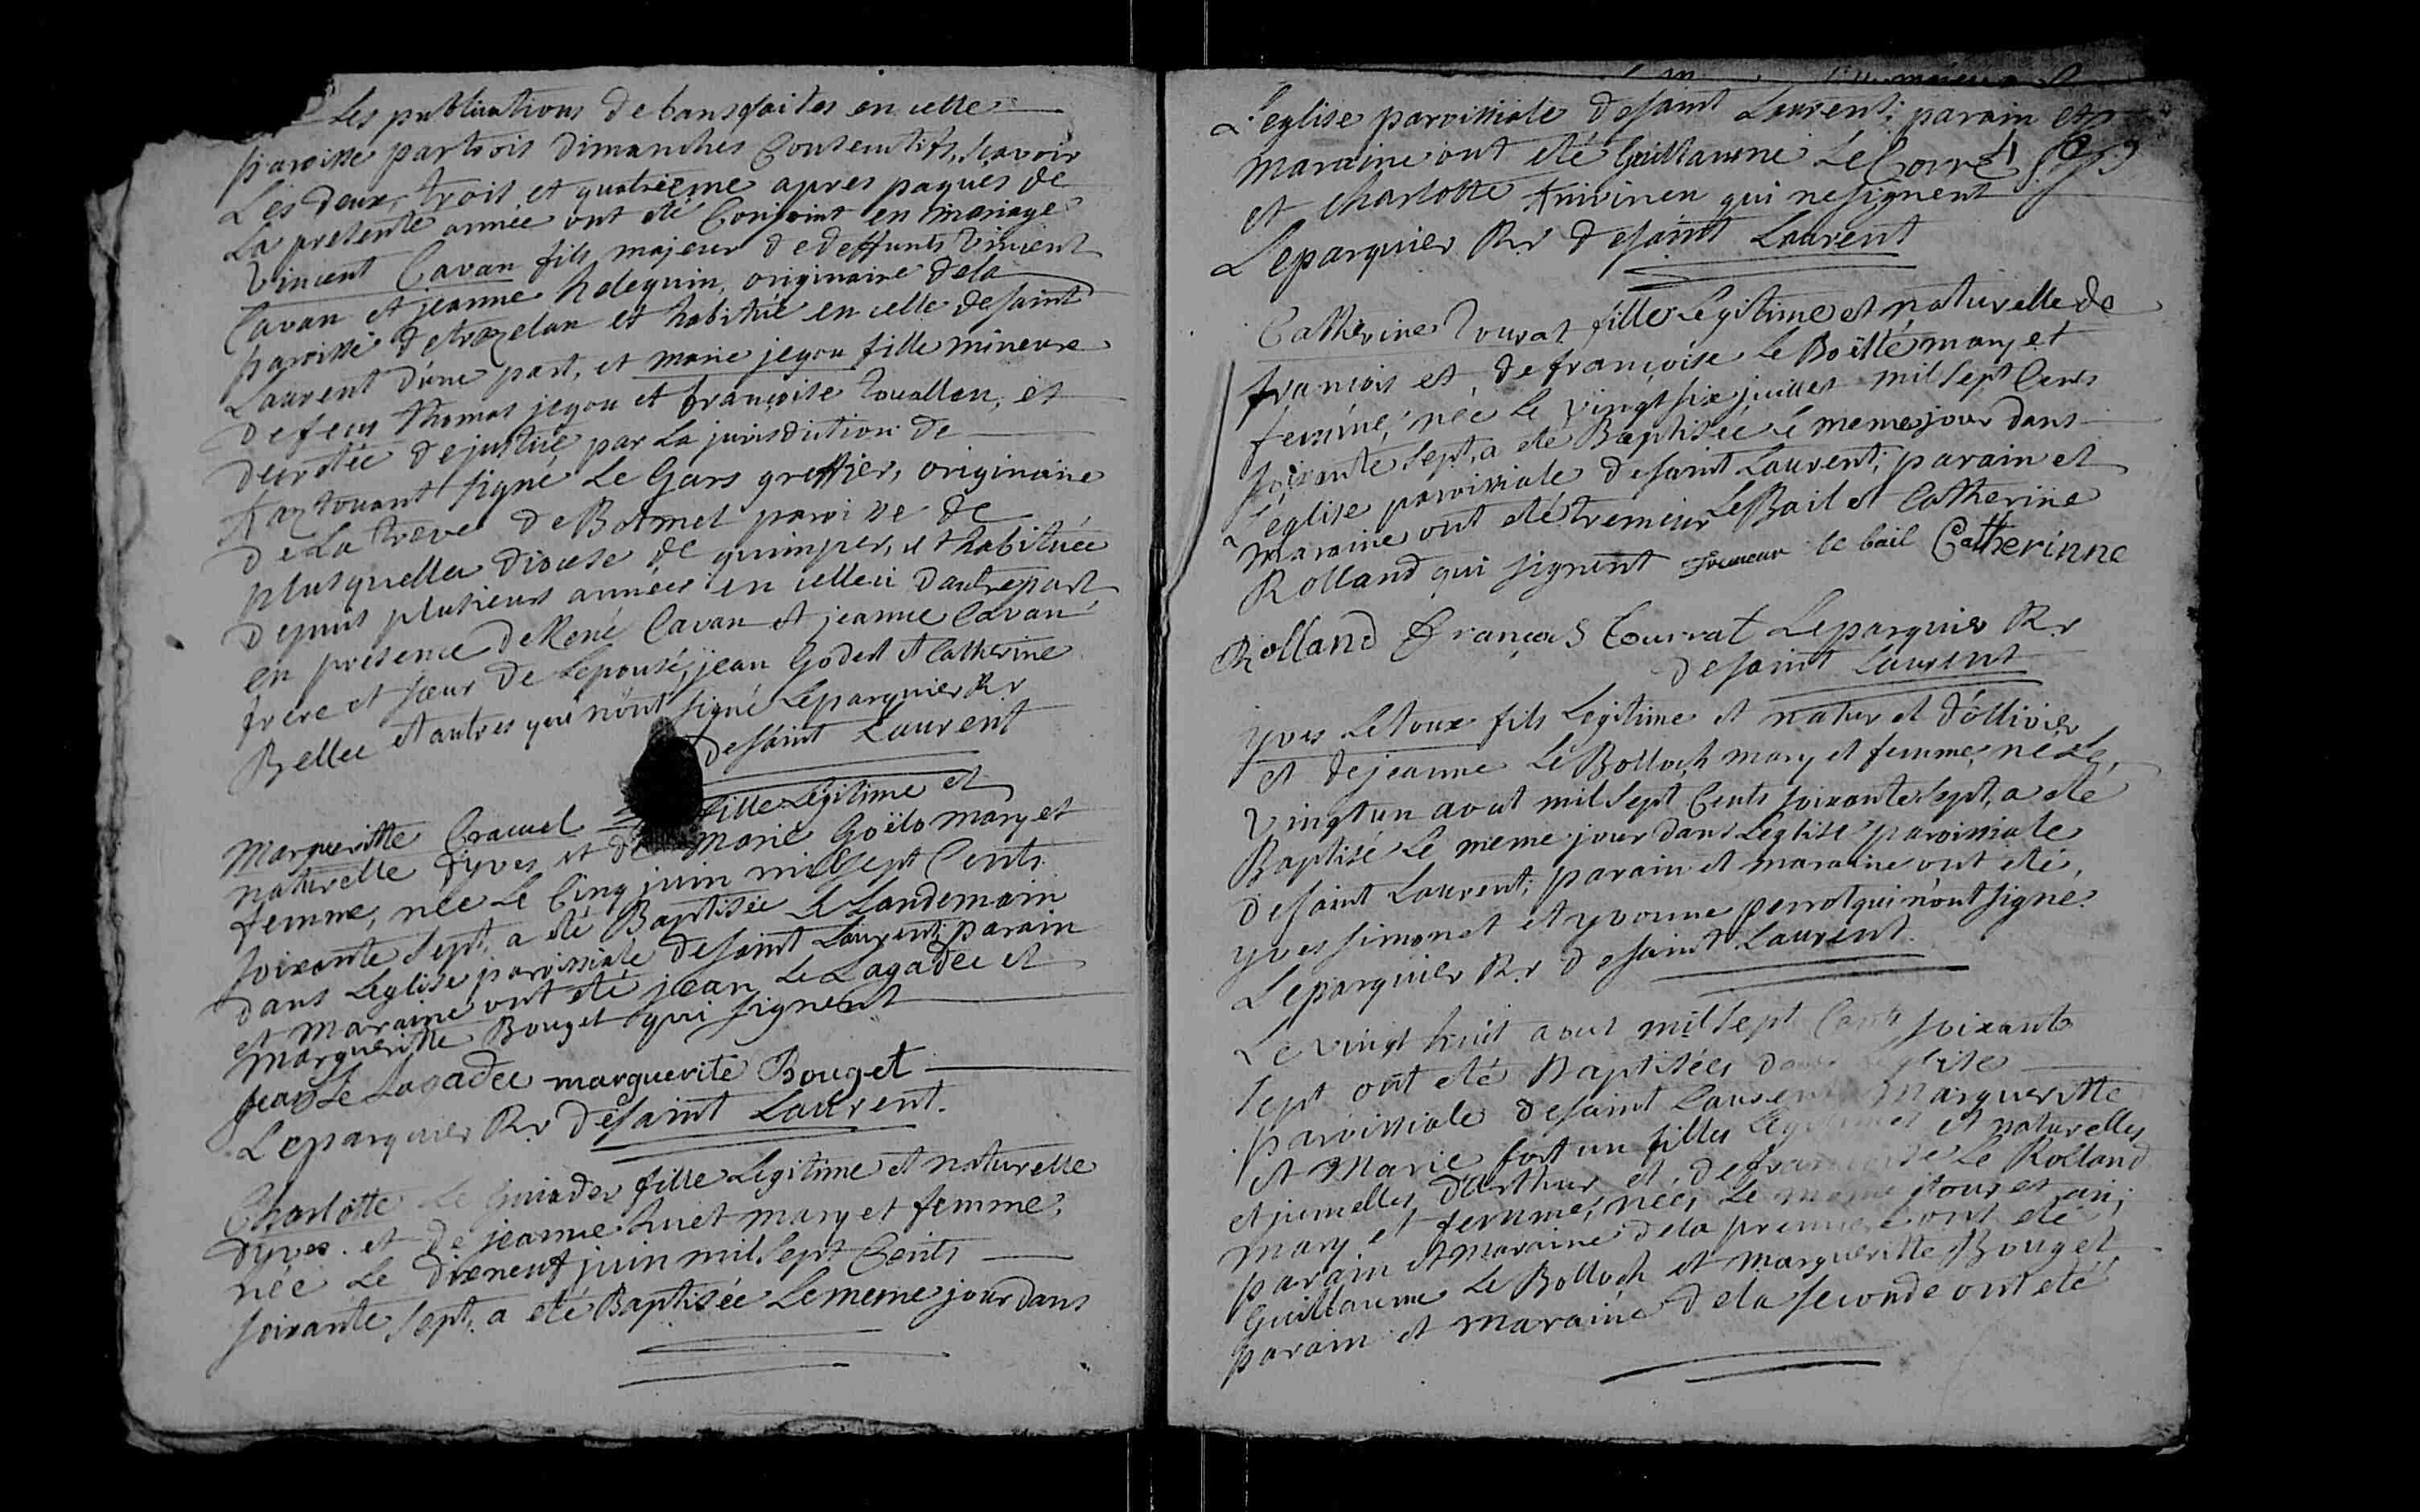 Les publications de bans faites en cette
paroisse par trois dimanches Consecutifs, sçavoir
Les deux, trois, et quatrieme apres paques de
La presente année ont été Conjoint en mariage
Vincent Cavan fils majeur de deffunts Vincent
Cavan et jeanne holeguin, originaire de la
paroisse de trezelan et habitué en celle de saint
Laurent d'une part, et marie jegou fille mineure
de feu thomas jegou et françoise Touallen, et
decretée de justice par la jurisdiction de
signé Le Gars greffier, originaire
de La treve de Botmel paroisse de
plusquellec diocese de quimper, et habituée
depuis plusieurs années en celle ci d'autre part
en presence de René Cavan et jeanne Cavan
frere et sœur de L'epousé, jean Godest et Catherine
Bellec et autres qui n'ont signé Leparquier Rr
de saint Laurent
Margueritte fille Legitime et
naturelle d'yves et de marie Goëlo mary et
femme, née Le Cinq juin mil sept Cents
soixante sept, a été Baptisée Le Landemain
dans L'eglise paroissiale de saint Laurent, parain
et maraine ont été jean Le Lagadec et
Margueritte Bouget qui signent
jean Le Lagadec marguerite Bouget
Leparquier Rr de saint Laurent.
Charlotte Le fille Legitime et naturelle
d'yves et de jeanne huet mary et femme,
née Le dixneuf juin mil sept Cents
soixante sept, a été Baptisée Le meme jour dans
L'eglise paroissiale de saint Laurent; parain et
maraine ont été Guillaume Le Corre
et Charlotte qui ne signent
Leparquier Rr de saint Laurent
Catherine Tourat fille Legitime et naturelle de
francois et de françoise Le Boëtté mary et
femme, née Le vingt six juillet mil sept Cents
soixante sept, a été Baptisée Le meme jour dans
L'eglise paroissiale de saint Laurent; parain et
maraine ont été tremeur Le Bail et Catherine
Rolland qui signent Tremeur le bail Catherinne
Rolland François Tourrat Leparquier Rr
de saint Laurent
yves Le toux fils Legitime et naturel d'ollivier
et de jeanne Le Bolloch mary et femme, né Le
vingt un aout mil sept Cents soixante sept, a été
Baptisé Le meme jour dans L'eglise paroissiale
de saint Laurent; parain et maraine ont été,
yves simonet et yvonne perrot qui n'ont signé
Leparquier Rr de saint Laurent.
Le vingt huit aout mil sept Cents soixante
sept ont été Baptisées dans L'eglise
paroissiale de saint Laurent Margueritte
et Marie fortun filles Legitimes et naturelles
et jumelles d'arthur et de françoise Le Rolland
mary et femme, nées Le meme jour et an;
parain et maraine de la premiere ont été
Guillaume Le Bolloch et Margueritte Bouget
parain et maraine de la seconde ont été